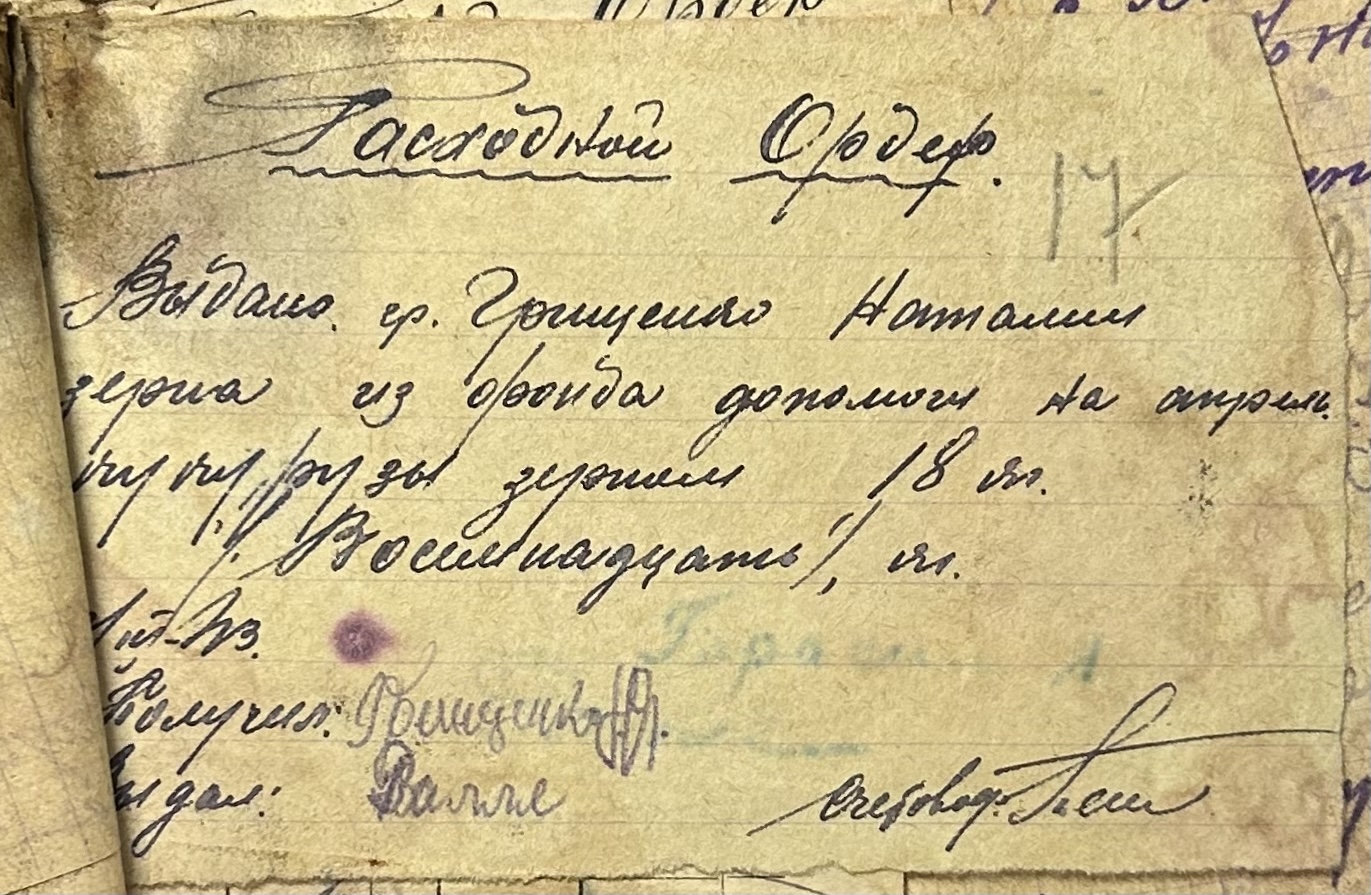 Расходной Ордер.
17
Выдано гр. Грищенко Наталии
зерна из фонда допомоги на апрель
кукурузы зерном 18 кг.
/Восемнадцать/, кг.
Получил: Грищенко Н.
Выдал:
Счетовод: